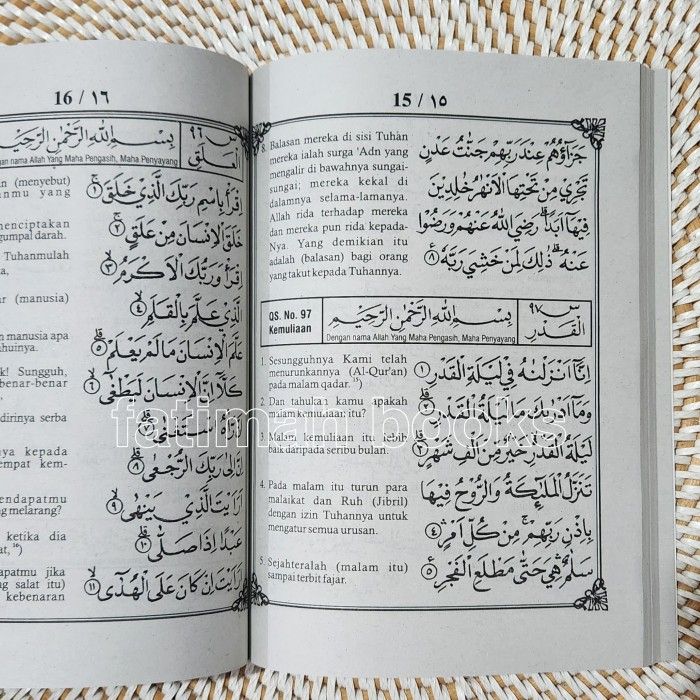 15 / ١٥
8. Balasan mereka di sisi Tuhan
mereka ialah surga 'Adn yang
mengalir di bawahnya sungai-
sungai; mereka kekal di
dalamnya selama-lamanya.
Allah rida terhadap mereka
dan mereka pun rida kepada-
Nya. Yang demikian itu
adalah (balasan) bagi orang
yang takut kepada Tuhannya.
جَزَآؤُهُمْ عِنْدَ رَبِّهِمْ جَنّٰتُ عَدْنٍ
تَجْرِيْ مِنْ تَحْتِهَا الْاَنْهٰرُ خٰلِدِيْنَ
فِيْهَآ اَبَدًا ۗ رَضِيَ اللّٰهُ عَنْهُمْ وَرَضُوْا
عَنْهُ ۗ ذٰلِكَ لِمَنْ خَشِيَ رَبَّهٗ ٨
QS. No. 97
Kemuliaan
بِسْمِ اللّٰهِ الرَّحْمٰنِ الرَّحِيْمِ
Dengan nama Allah Yang Maha Pengasih, Maha Penyayang
س ٩٧
الْقَدْرِ
1. Sesungguhnya Kami telah
menurunkannya (Al-Qur'an)
pada malam qadar. 15)
2. Dan tahukah kamu apakah
malam kemuliaan itu?
3. Malam kemuliaan itu lebih
baik daripada seribu bulan.
4. Pada malam itu turun para
malaikat dan Ruh (Jibril)
dengan izin Tuhannya untuk
mengatur semua urusan.
5. Sejahteralah (malam itu)
sampai terbit fajar.
اِنَّآ اَنْزَلْنٰهُ فِيْ لَيْلَةِ الْقَدْرِ ١
وَمَآ اَدْرٰىكَ مَا لَيْلَةُ الْقَدْرِ ٢
لَيْلَةُ الْقَدْرِ خَيْرٌ مِّنْ اَلْفِ شَهْرٍ ٣
تَنَزَّلُ الْمَلٰۤىِٕكَةُ وَالرُّوْحُ فِيْهَا
بِاِذْنِ رَبِّهِمْ مِّنْ كُلِّ اَمْرٍ ٤
سَلٰمٌ هِيَ حَتّٰى مَطْلَعِ الْفَجْرِ ٥
16 / ١٦
بِسْمِ اللّٰهِ الرَّحْمٰنِ الرَّحِيْمِ
nama Allah Yang Maha Pengasih, Maha Penyayang
س ٩٦
الْعَلَقِ
(menyebut)
nmu yang
enciptakan
gumpal darah.
Tuhanmulah
(manusia)
manusia apa
ahuinya.
k! Sungguh,
benar-benar
dirinya serba
nya kepada
empat kem-
endapatmu
ng melarang?
ketika dia
at, 16)
apatmu jika
g salat itu)
kebenaran
اِقْرَأْ بِاسْمِ رَبِّكَ الَّذِيْ خَلَقَ ١
خَلَقَ الْاِنْسَانَ مِنْ عَلَقٍ ٢
اِقْرَأْ وَرَبُّكَ الْاَكْرَمُ ٣
الَّذِيْ عَلَّمَ بِالْقَلَمِ ٤
عَلَّمَ الْاِنْسَانَ مَا لَمْ يَعْلَمْ ٥
كَلَّآ اِنَّ الْاِنْسَانَ لَيَطْغٰٓى ٦
اَنْ رَّاٰهُ اسْتَغْنٰى ٧
اِنَّ اِلٰى رَبِّكَ الرُّجْعٰى ٨
اَرَاَيْتَ الَّذِيْ يَنْهٰى ٩
عَبْدًا اِذَا صَلّٰى ١٠
اَرَاَيْتَ اِنْ كَانَ عَلَى الْهُدٰٓى ١١
fatimah books